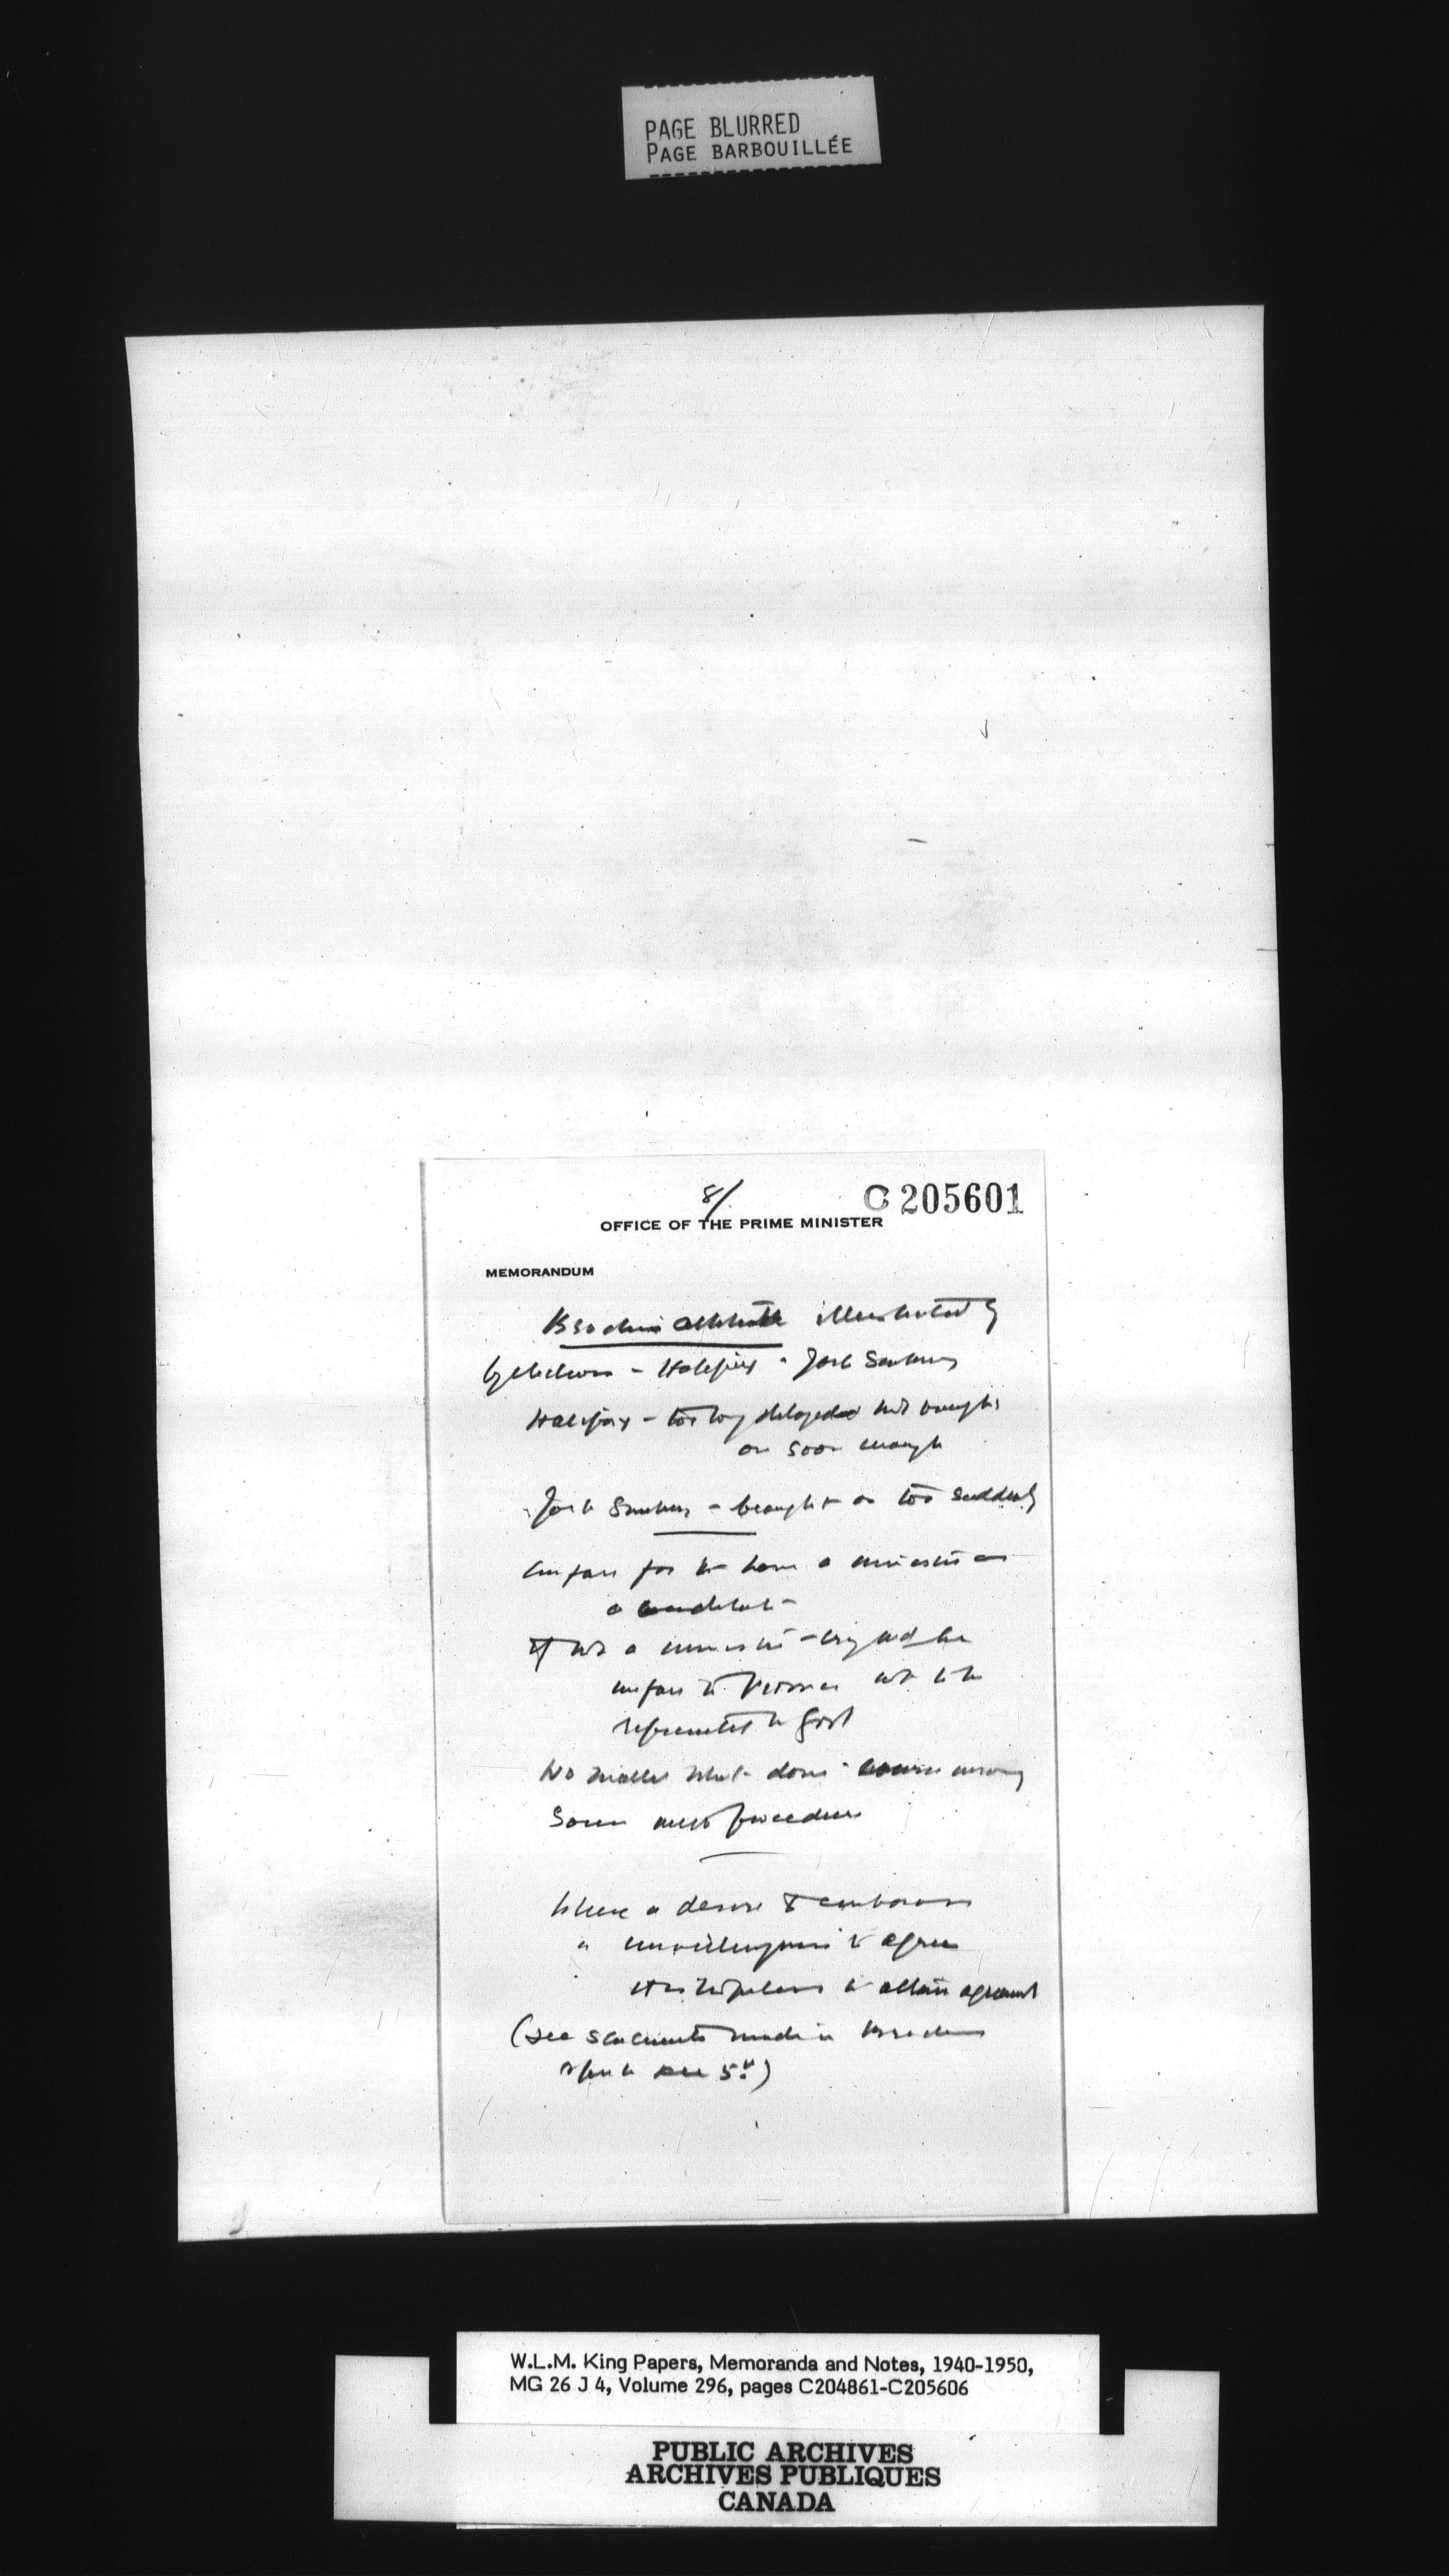 PAGE BLURRED
PAGE BARBOUILLÉE
8/.
C 205601
OFFICE OF THE PRIME MINISTER
MEMORANDUM
illustrated by
Halifax - York Sunbury
Halifax - too long delayed not brought
on soon enough
York Sunbury - brought on too suddenly
Unfair for to have a minister as
a candidate
If not a minister -
unfair to not to be
represented in Govt
No matter what done - wrong
Same procedure
Where a desire to embarrass
" unwillingness to agree
to attain agreement
(see statements made in
5th)
W.L.M. King Papers, Memoranda and Notes, 1940-1950,
MG 26 J 4, Volume 296, pages C204861-C205606
PUBLIC ARCHIVES
ARCHIVES PUBLIQUES
CANADA